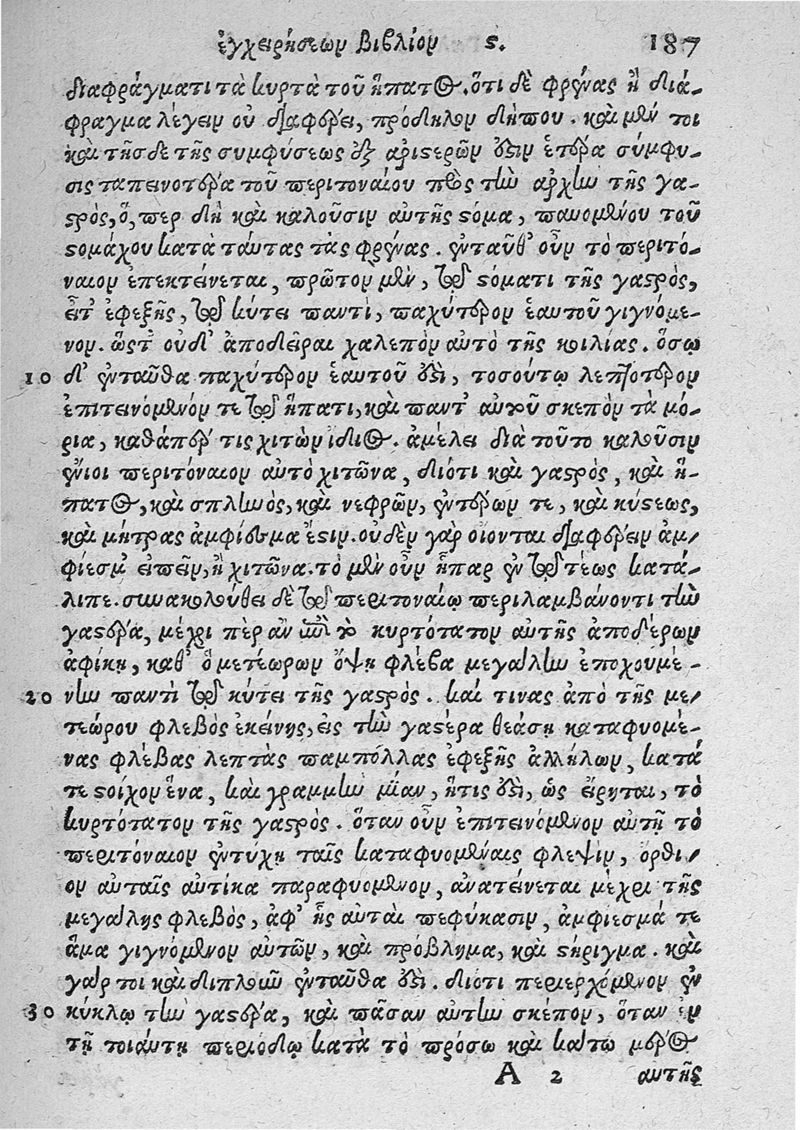 ἐγχειρήσεων βιβλίον ϛ. 187
διαφράγματι τὰ κυρτὰ τοῦ ἥπατος. ὅτι δὲ φρένας ἢ διά-
φραγμα λέγειν οὐ διαφέρει, πρόδηλον δήπου. καὶ μέν τοι
καὶ τῆσδε τῆς συμφύσεως ἐξ ἀριστερῶν ἐστιν ἑτέρα σύμφυ-
σις ταπεινοτέρα τοῦ περιτοναίου πρὸς τὴν ἀρχὴν τῆς γα-
στρὸς, ὅ, περ δὴ καὶ καλοῦσιν αὐτῆς στόμα, παυομένου τοῦ
στομάχου κατὰ ταύτας τὰς φρένας. ἐνταῦθ' οὖν τὸ περιτό-
ναιον ἐπεκτείνεται, πρῶτον μὲν, τῷ στόματι τῆς γαστρὸς,
εἶτ' ἐφεξῆς, τῷ κύτει παντὶ, παχύτερον ἑαυτοῦ γιγνόμε-
νον. ὥστ' οὐδ' ἀποδεῖραι χαλεπὸν αὐτὸ τῆς κοιλίας. ὅσῳ
10 δ' ἐνταῦθα παχύτερον ἑαυτοῦ ἐστὶ, τοσούτῳ λεπτότερον
ἐπιτεινόμενόν τε τῷ ἥπατι, καὶ πάντ' αὐτοῦ σκέπον τὰ μό-
ρια, καθάπερ τις χιτὼν ἴδιος. ἀμέλει διὰ τοῦτο καλοῦσιν
ἔνιοι περιτόναιον αὐτὸ χιτῶνα, διότι καὶ γαστρὸς, καὶ ἥ-
πατος, καὶ σπληνὸς, καὶ νεφρῶν, ἐντέρων τε, καὶ κύστεως,
καὶ μήτρας ἀμφίεσμα ἔστιν. οὐδὲν γὰρ οἴονται διαφέρειν ἀμ-
φίεσμ' εἰπεῖν, ἢ χιτῶνα. τὸ μὲν οὖν ἧπαρ ἐν τῷ τέως κατά-
λιπε. συνακολούθει δὲ τῷ περιτοναίῳ περιλαμβάνοντι τὴν
γαστέρα, μέχρι πὲρ ἂν ἐπὶ τὸ κυρτότατον αὐτῆς ἀποδέρων
ἀφίκῃ, καθ' ὃ μετέωρον ὄψῃ φλέβα μεγάλην ἐποχουμέ-
20 νην παντὶ τῷ κύτει τῆς γαστρὸς. καί τινας ἀπὸ τῆς με-
τεώρου φλεβὸς ἐκείνης, εἰς τὴν γαστέρα θεάσῃ καταφυομέ-
νας φλέβας λεπτὰς παμπόλλας ἐφεξῆς ἀλλήλων, κατά
τε στοίχον ἕνα, καὶ γραμμὴν μίαν, ἥτις ἐστὶ, ὡς εἴρηται, τὸ
κυρτότατον τῆς γαστρὸς. ὅταν οὖν ἐπιτεινόμενον αὐτῇ τὸ
περιτόναιον ἐντύχῃ ταῖς καταφυομέναις φλεψὶν, ὄρθι-
ον αὐταῖς αὐτίκα παραφυόμενον, ἀνατείνεται μέχρι τῆς
μεγάλης φλεβὸς, ἀφ' ἧς αὐταὶ πεφύκασιν, ἀμφίεσμά τε
ἅμα γιγνόμενον αὐτῶν, καὶ πρόβλημα, καὶ στήριγμα. καὶ
γάρ τοι καὶ διπλοῦν ἐνταῦθα ἐστὶ. διότι περιερχόμενον ἐν
30 κύκλῳ τὴν γαστέρα, καὶ πᾶσαν αὐτὴν σκέπον, ὅταν ἐν
τῇ τοιαύτῃ περιόδῳ κατὰ τὸ πρόσω καὶ κάτω μέρος
A 2 αυτῆς